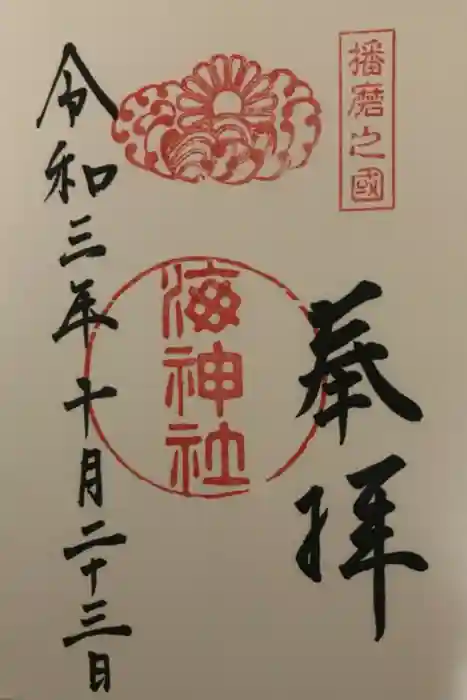 播磨之國
奉拝
海神社
令和三年十月二十三日